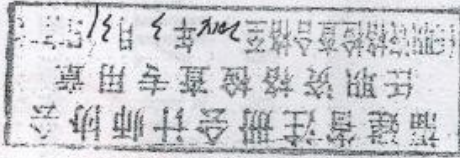 福建省注册会计师协会
任职资格检查专用章
职资格检查合格至 年3月31日